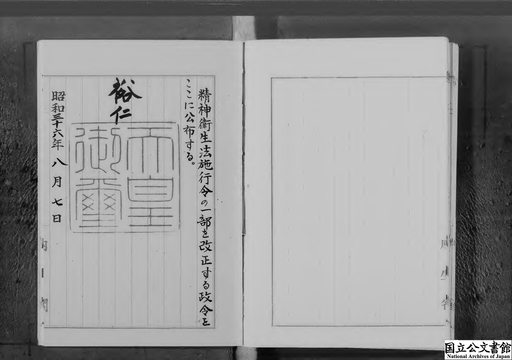 精神衛生法施行令の一部を改正する政令を
ここに公布する。
裕仁
天皇
御璽
昭和三十六年八月七日
国立公文書館
National Archives of Japan